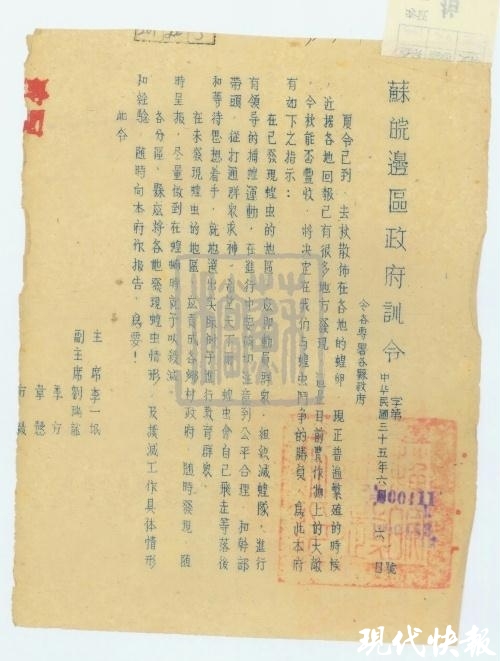 蘇皖邊區政府訓令
字第
號
中华民國三十五年六月
日
令各專署各縣政府
夏令已到,去秋散佈在各地的蝗卵,現正普遍繁殖的時候
近据各地回報已有很多地方發現,
目前農作物上的大敵
今秋能否豐收,將决定在我們与蝗虫鬥争的勝負,為此本府
有如下之指示:
在已發現蝗虫的地區,应即動員群眾,組織滅蝗隊,進行
有領导的捕蝗運動,在進行中要
切注意到公平合理,和幹部
帶頭,從打通群眾求神,
天不雨,蝗虫會自己飛走等落後
和等待思想着手,就地選出实际例子進行教育群众
在未發現蝗虫的地區,应責成各鄉村政府,随時發現,随
時呈报,尽量做到在蝗蝻時就予以殺滅
各分區,縣应將各地發現蝗虫情形,及撲滅工作具体情形
和經驗,随時向本府作报告,為要!
此令
主席李一氓
副主席劉瑞龍
季方
韋慤
方毅
111400
蘇皖
现代快报